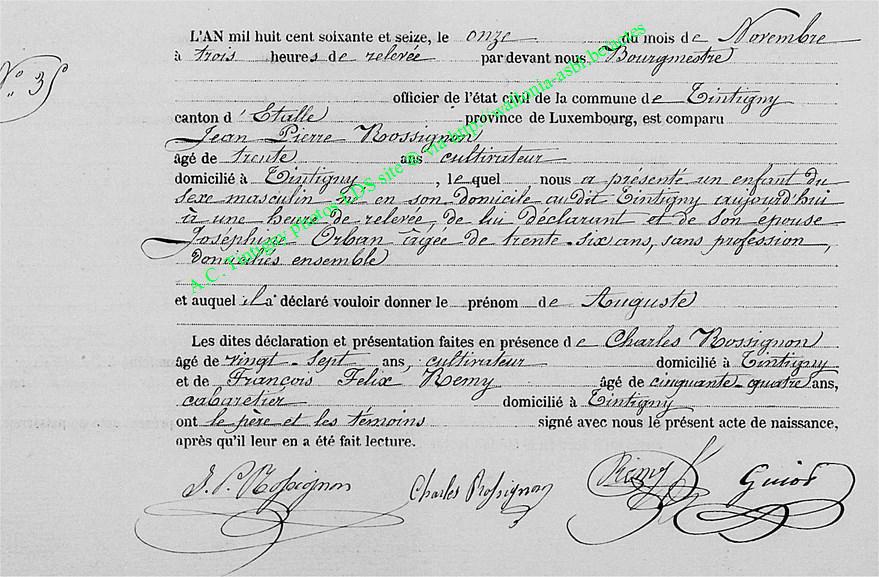 N° 35
L'AN mil huit cent soixante et seize, le onze du mois de Novembre
à trois heures de relevée par devant nous Bourgmestre
officier de l'état civil de la commune de Tintigny
canton d'Etalle province de Luxembourg, est comparu
Jean Pierre Rossignon
âgé de trente ans cultivateur
domicilié à Tintigny, lequel nous a présenté un enfant du
sexe masculin né en son domicile audit Tintigny aujourd'hui
à une heure de relevée, de lui déclarant et de son épouse
Joséphine Orban âgée de trente-six ans, sans profession,
domiciliés ensemble
et auquel il a déclaré vouloir donner le prénom de Auguste
Les dites déclaration et présentation faites en présence de Charles Rossignon
âgé de vingt-sept ans, cultivateur domicilié à Tintigny
et de François Felix Remy âgé de cinquante-quatre ans,
cabaretier domicilié à Tintigny
ont le père et les témoins signé avec nous le présent acte de naissance,
après qu'il leur en a été fait lecture.
J. P. Rossignon Charles Rossignon Rémy Guiot
A.C. Tintigny photos LDS site © via http://wallonia-asbl.be/actes